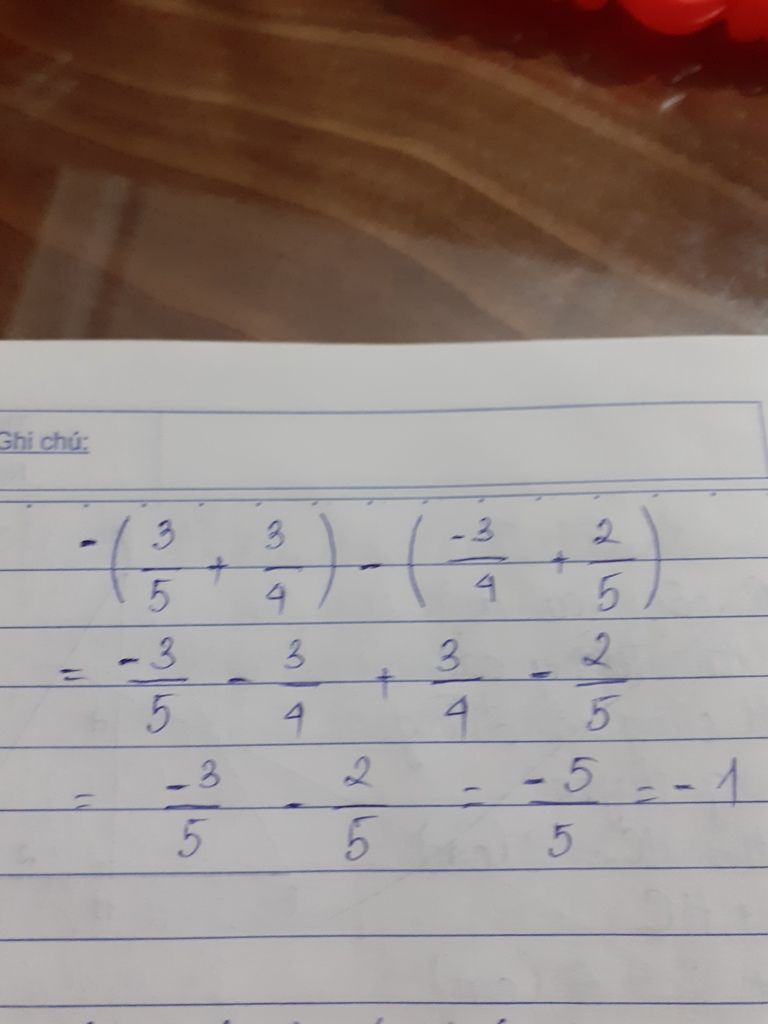 Ghi chú:
-(3/5 + 3/4) - (-3/4 + 2/5)
= -3/5 - 3/4 + 3/4 - 2/5
= -3/5 - 2/5 = -5/5 = -1